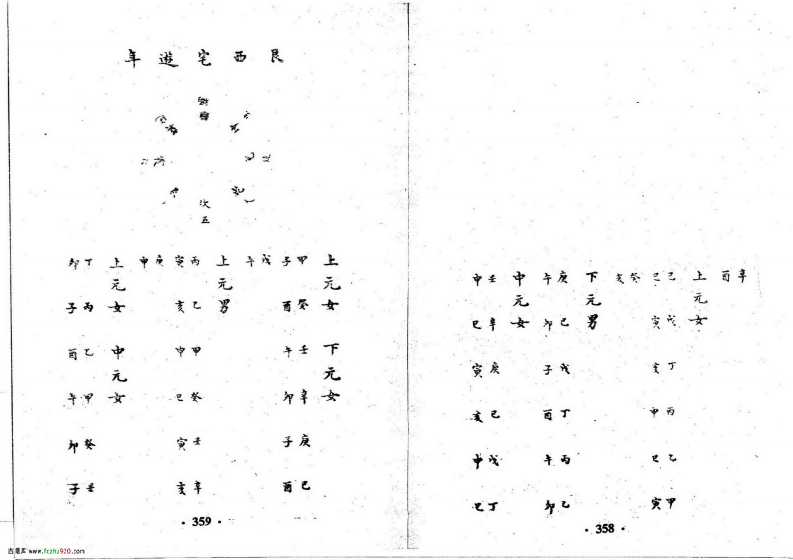 辛酉
上元女
己巳
戊寅
丁亥
丙申
乙巳
甲寅
癸亥
下元男
庚午
己卯
戊子
丁酉
丙午
乙卯
中元女
壬申
辛巳
庚寅
己亥
戊申
丁巳
·358·
艮西宅遊年
次五
上元女 下元女
甲子
癸酉
壬午
辛卯
庚子
己酉
戊午
上元男
丙寅
乙亥
甲申
癸巳
壬寅
辛亥
庚申
上元女 中元女
丁卯
丙子
乙酉
甲午
癸卯
壬子
·359·
www.fczhu920.com